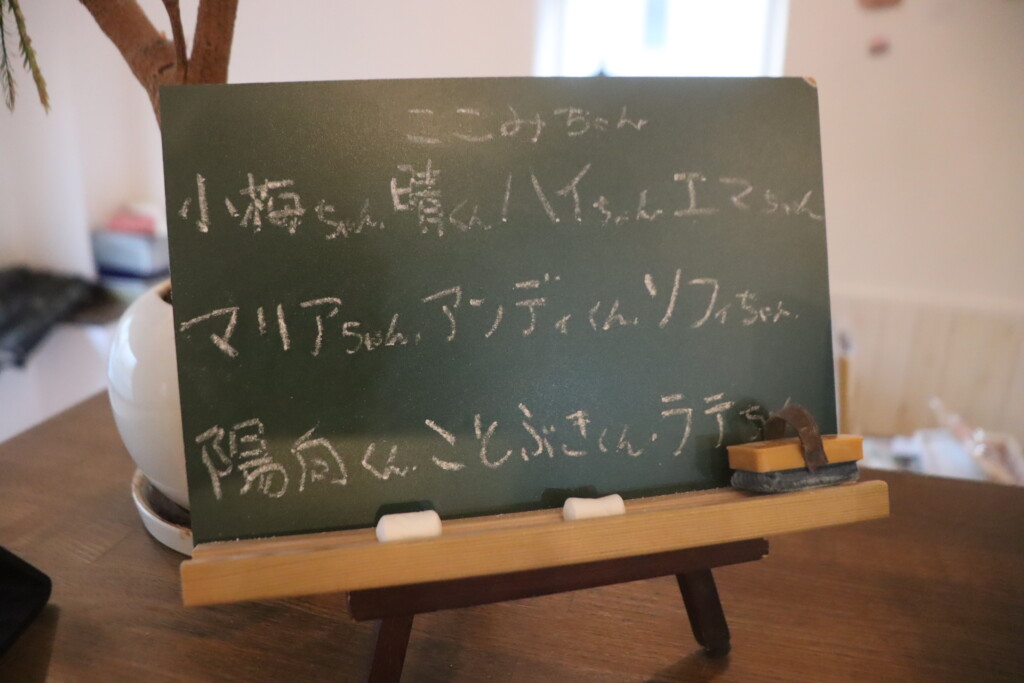 ここみちゃん
小梅ちゃん.晴くん.ハイちゃん.エマちゃん
マリアちゃん.アンディくん.ソフィちゃん.
陽向くん.ことぶきくん.ラテ